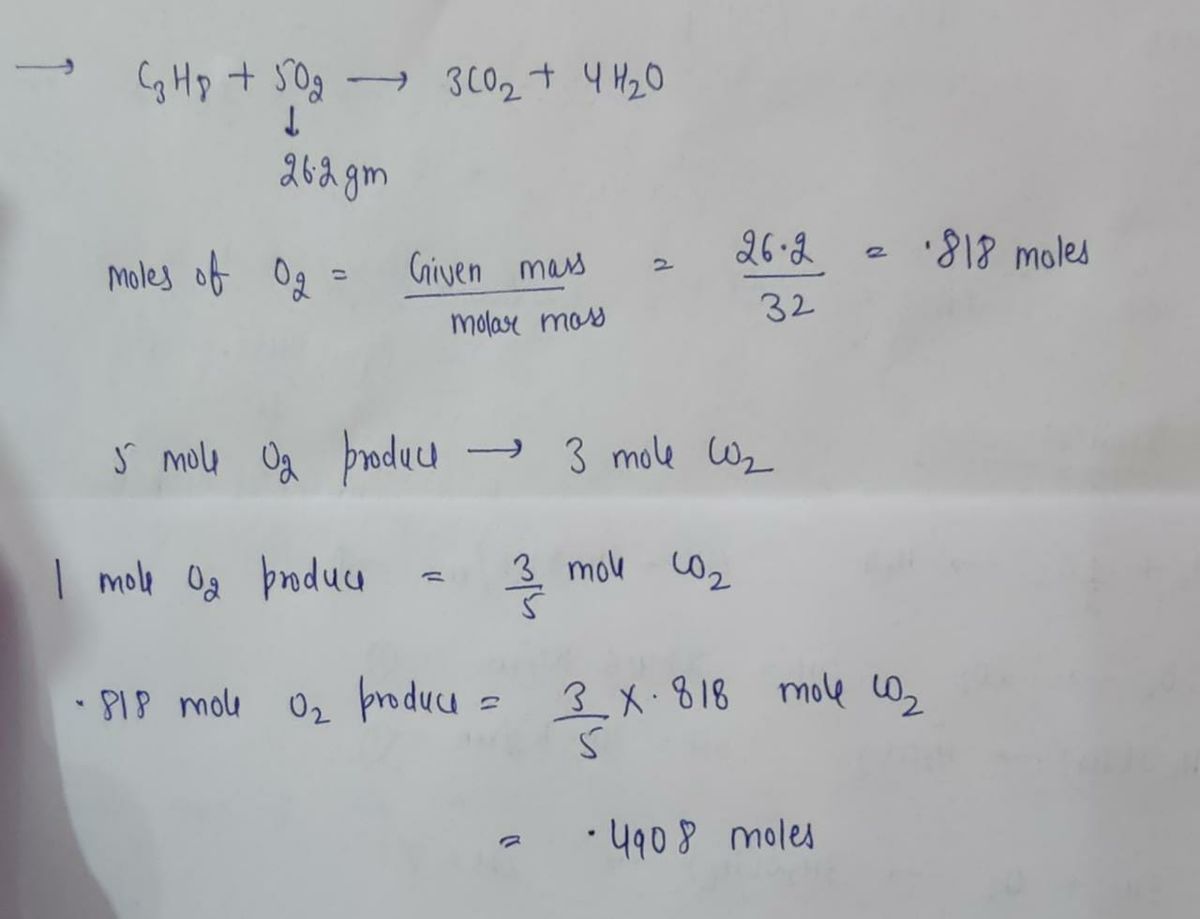 → C₃H₈ + 5O₂ → 3CO₂ + 4H₂O
↓
26.2 gm
moles of O₂ = Given mass / molar mass = 26.2 / 32 = .818 moles
5 mole O₂ produce → 3 mole CO₂
1 mole O₂ produce = 3/5 mole CO₂
.818 mole O₂ produce = 3/5 X .818 mole CO₂
= .4908 moles